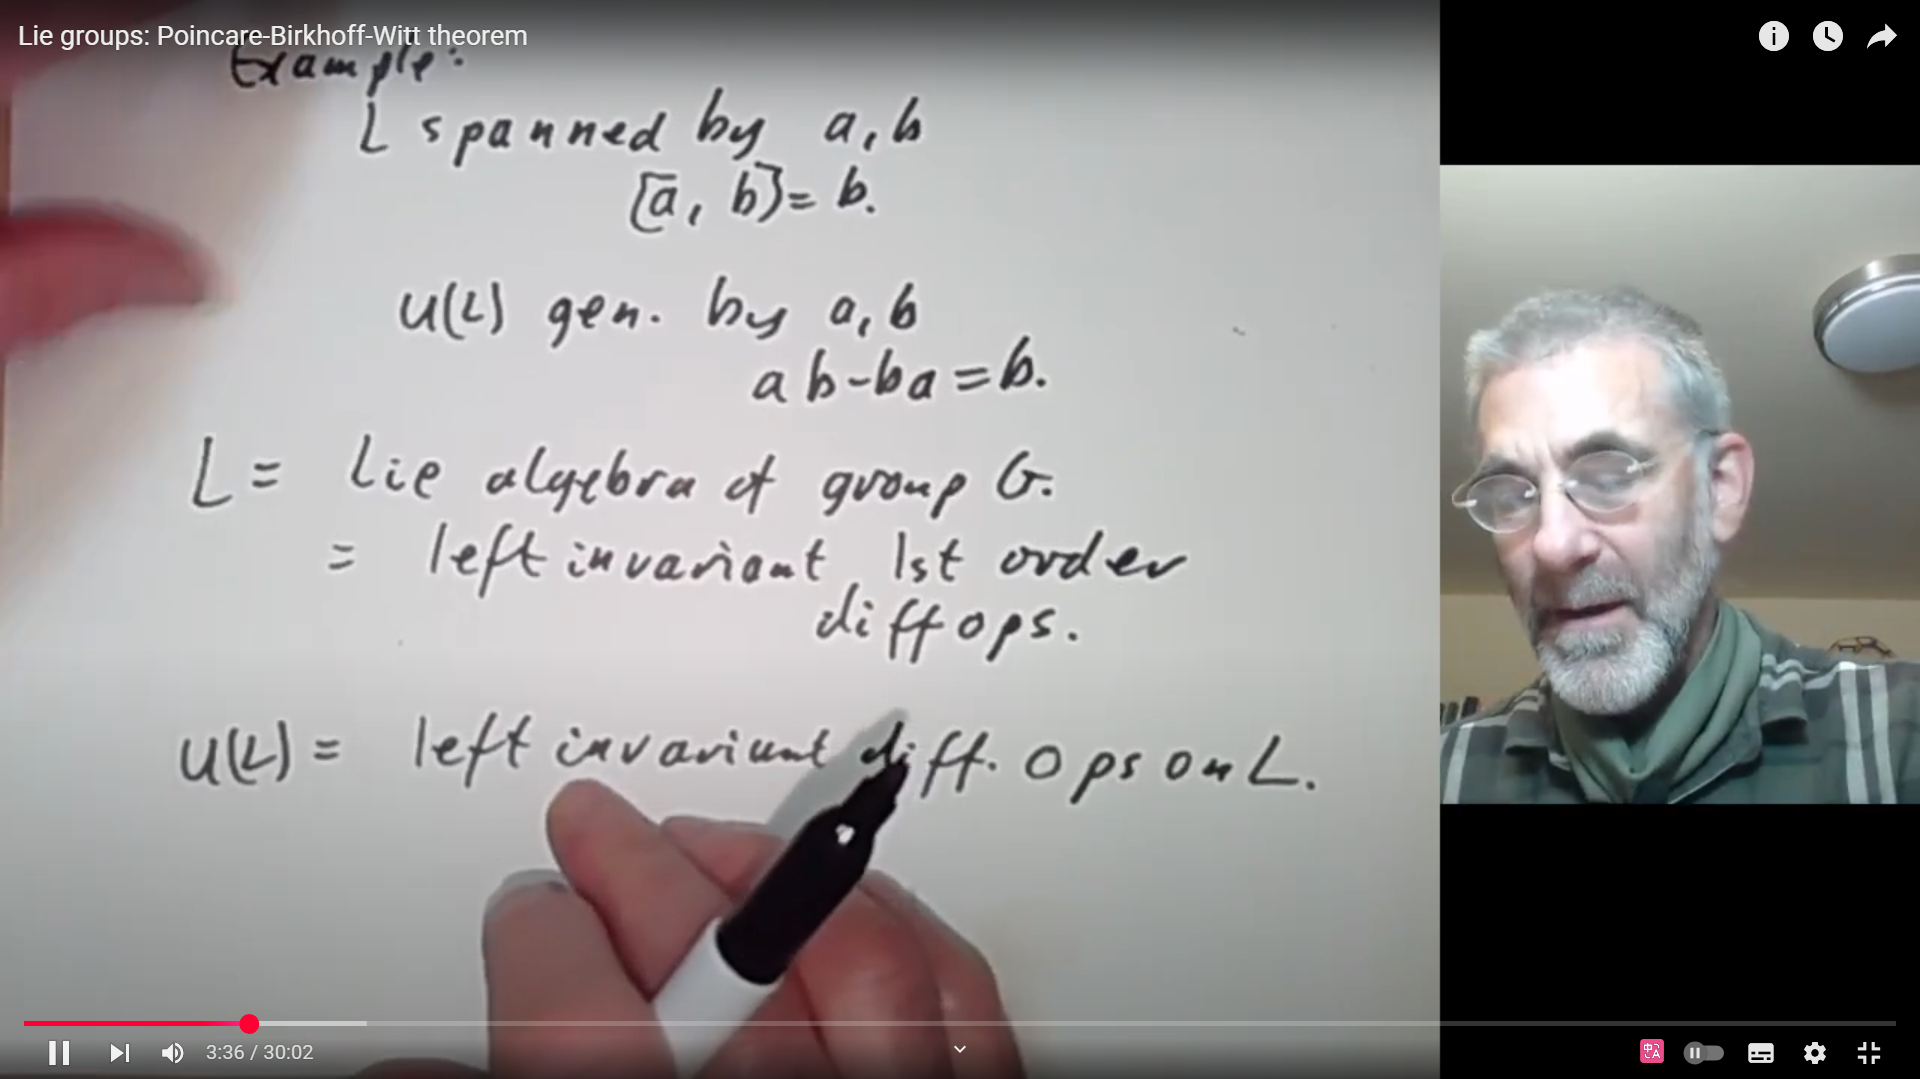 Lie groups: Poincare-Birkhoff-Witt theorem
Example:
L spanned by a, b
[a, b] = b.
U(L) gen. by a, b
ab - ba = b.
L = Lie algebra of group G.
= left invariant 1st order
diff ops.
U(L) = left invariant diff. ops on L.
3:36 / 30:02